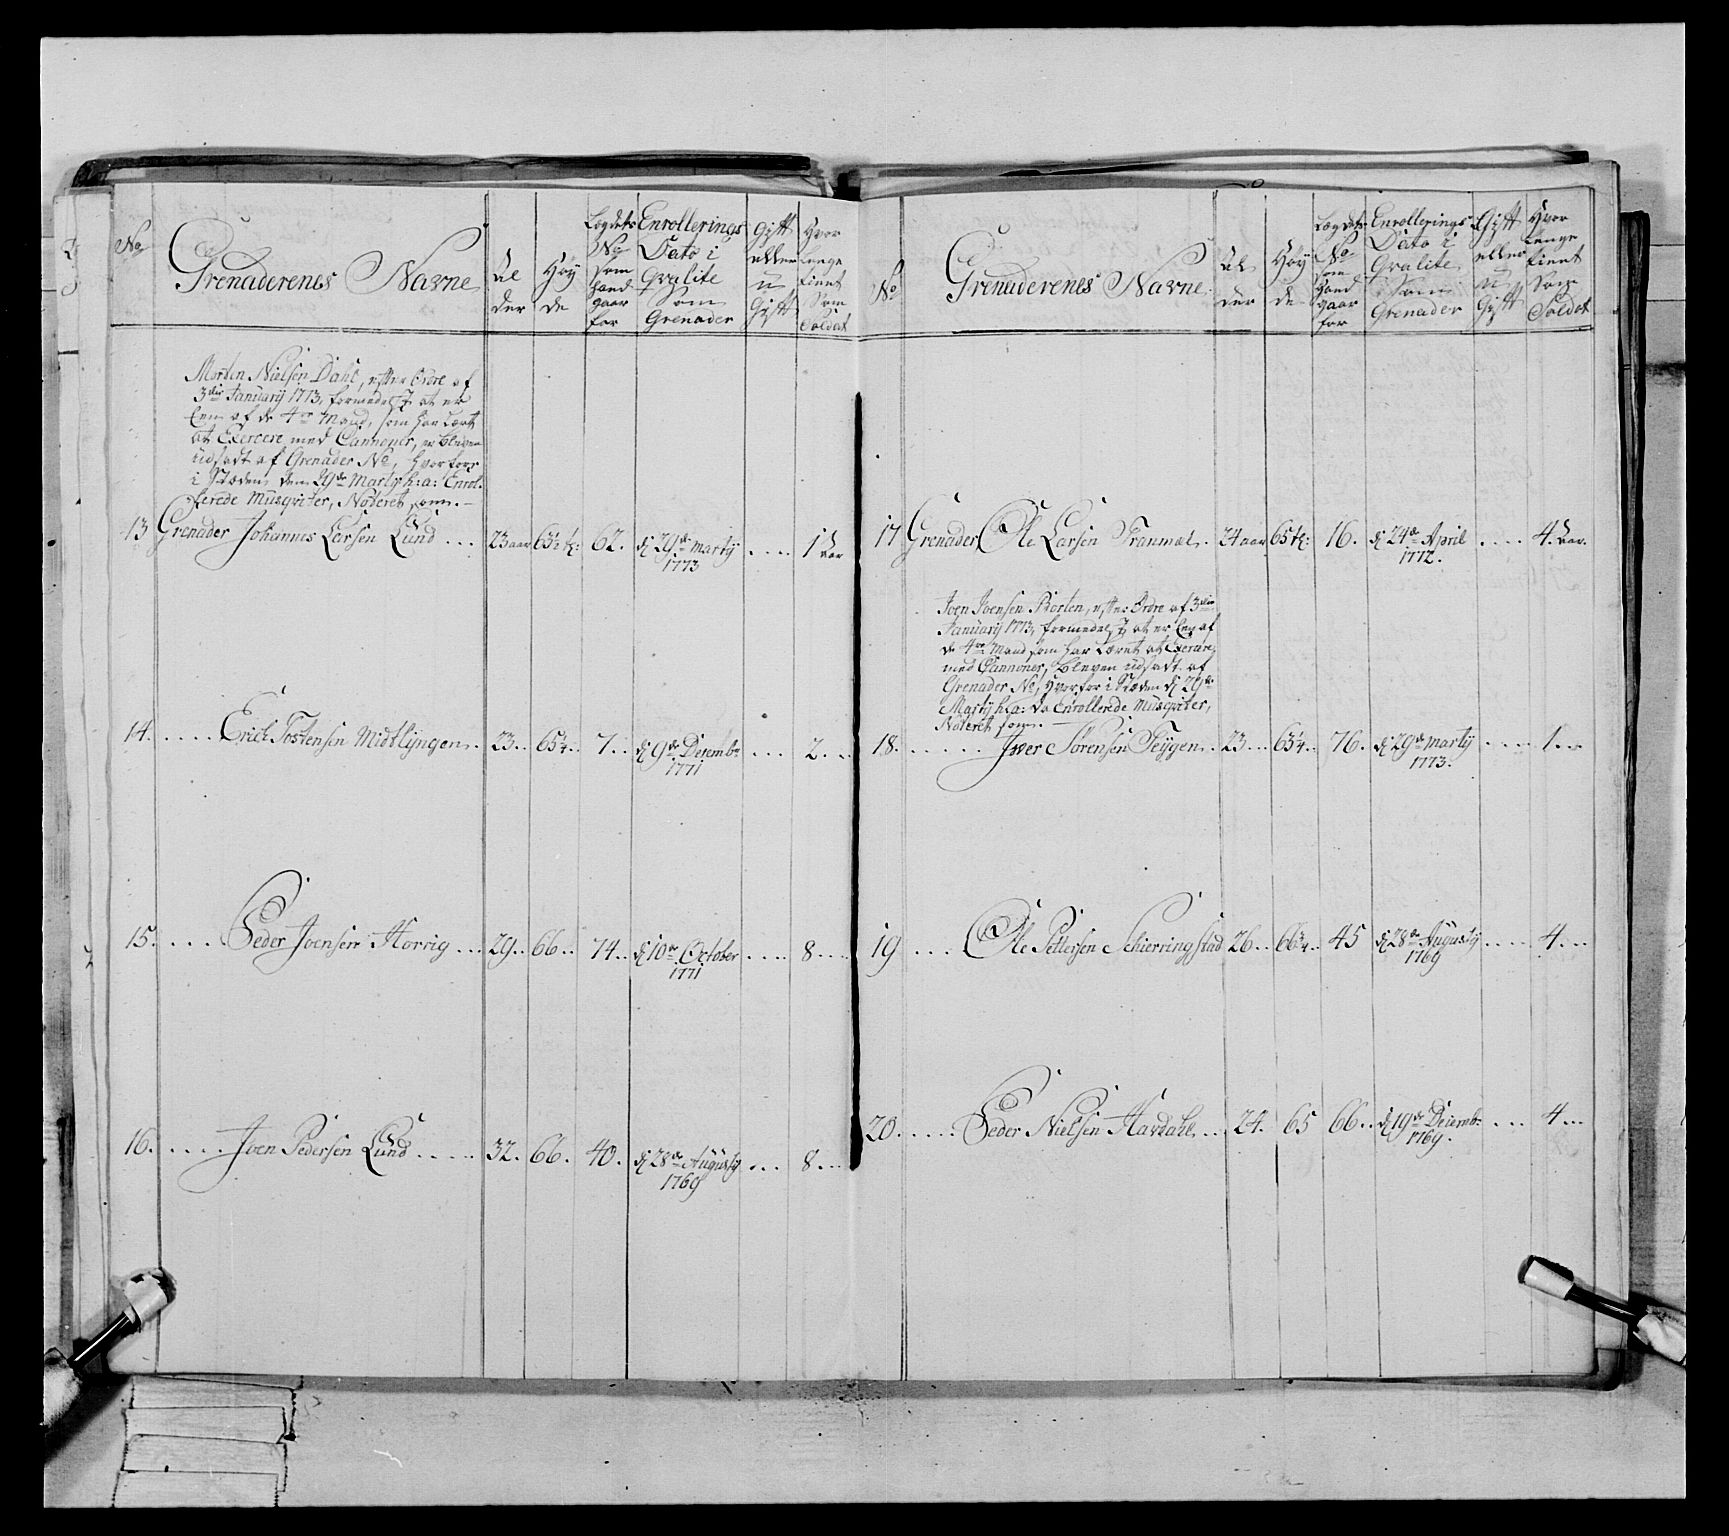 No
Grenaderenes Navne
Al
der
Höy
de
Legdets
No
som
hand
gaar
for
Enrollerings
Dato i
Qvalite
som
Grenader
Gift
eller
u
Gift
Hvor
lenge
tient
som
Soldat
Morten Nielsen Dahl, efter Ordre af
3die January 1773, formedelst at er
Een af de 4re Mand, som har lært
at Exercere med Cannoner, er bleven
udsadt af Grenader No, hvorfor
i Stæden dem 29de Marty h: a: Enrol-
lerede Musqviter, Noteret som.
13 Grenader Johannes Larsen Lund ... 23 aar 63½ t: 62. d 29de Marty .... 1 aar
1773
14. ..... Erich Tostensen Midtlyngen. 23.. 65¼.. 7.. d 9de Decembr .... 2...
1771
15. .... Peder Joensen Horrig ... 29.. 66.. 74.. d 10de October ..... 8....
1771
16. ..... Joen Pedersen Lund ..... 32. 66. 40. d 28de Augusty ... 8...
1769
No
Grenaderenes Navne
Al
der
Höy
de
Legdets
No
som
hand
gaar
for
Enrollerings
Dato i
Qvalite
som
Grenader
Gift
eller
u
Gift
Hvor
lenge
tient
som
Soldat
17 Grenader Ole Larsen Tranmæl. 24 aar 65 t: 16. d 24de April ..... 4. aar.
1772.
Joen Joensen Borten, efter Ordre af 3die
January 1773, formedelst at er Een af
de 4re Mand som har læret at Exercere
med Cannoner, bleven udsadt af
Grenader No, hvorfor i Stæden d 29de
Marty h: a: da Enrollerede Musqviter,
Noteret som.
18. ...... Iver Sörensen Teygen. 23... 63¼.. 76. d 29de Marty .... 1...
1773.
19 .... Ole Pettersen Schierringstad 26.. 66¼.. 45 d 28de Augusty .... 4...
1769
20. ..... Peder Nielsen Havdahl... 24. 65 66.. d 19de Decembr ... 4...
1769.